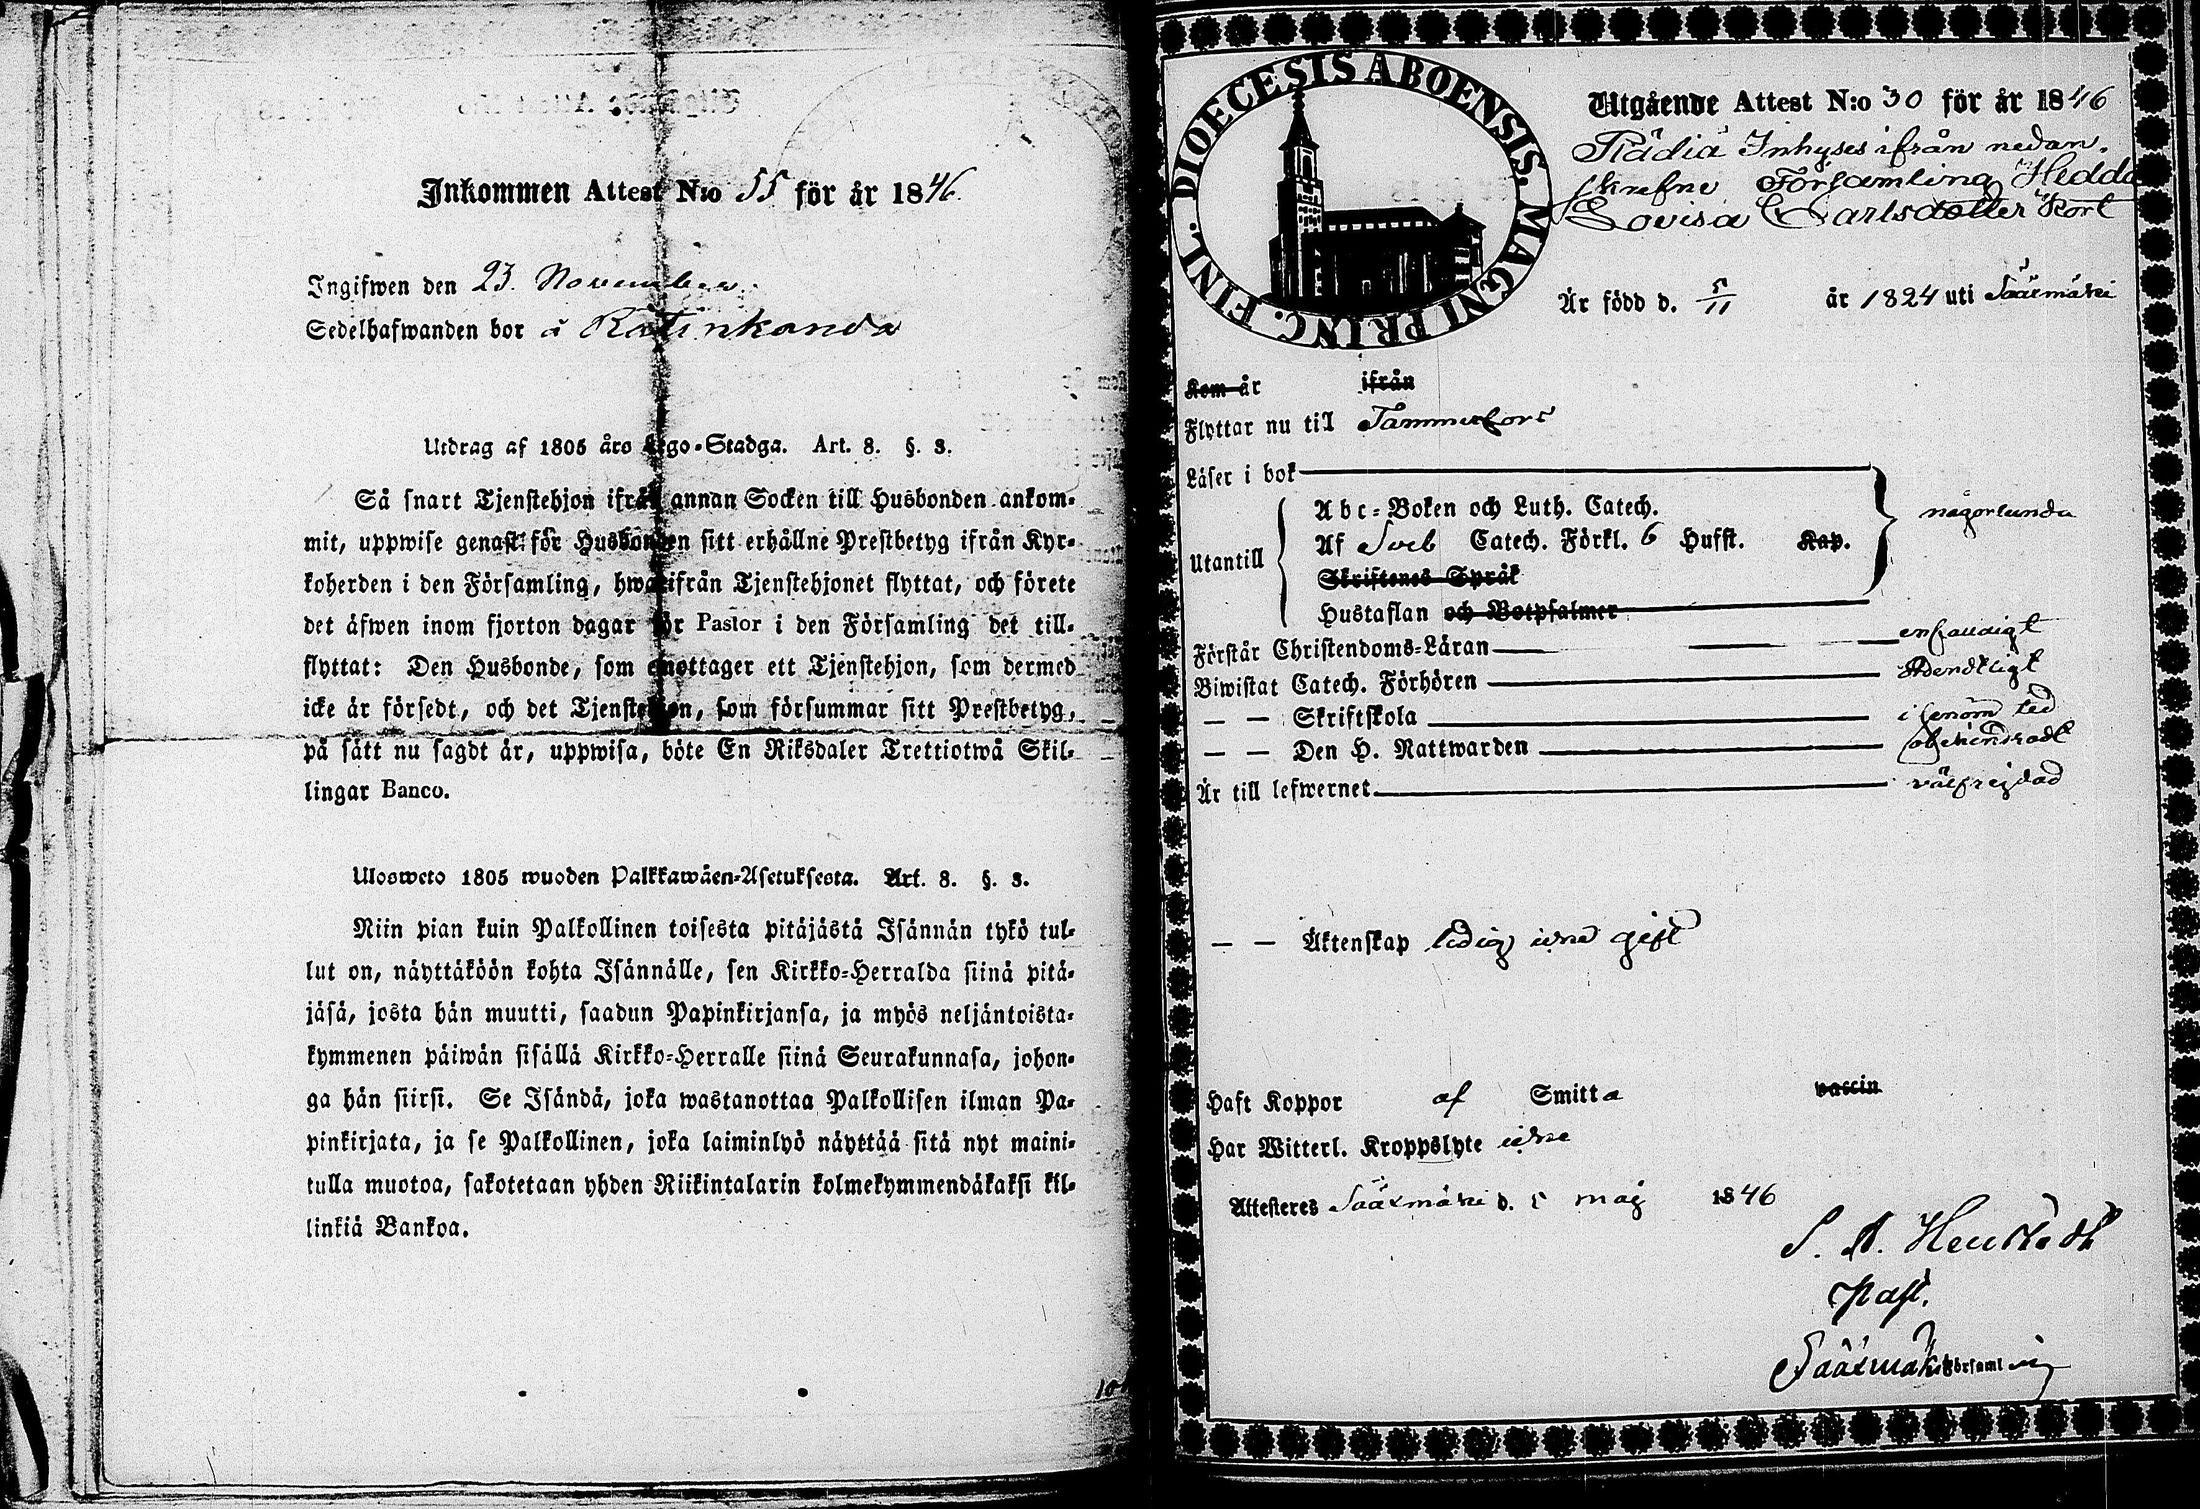 Inkommen Attest N:o 55 för år 1846.
Ingifwen den 23. November.
Sedelhafwanden bor å Ratinkanda
Utdrag af 1805 års Lego-Stadga. Art. 8. §. 3.
Så snart Tjenstehjon ifrån annan Socken till Husbonden ankom-
mit, uppwise genast för Husbonden sitt erhållne Prestbetyg ifrån Kyr-
koherden i den Församling, hwarifrån Tjenstehjonet flyttat, och förete
det äfwen inom fjorton dagar för Pastor i den Församling det till-
flyttat: Den Husbonde, som emottager ett Tjenstehjon, som dermed
icke är försedt, och det Tjenstehjon, som försummar sitt Prestbetyg,
på sätt nu sagdt är, uppwisa, böte En Riksdaler Trettiotwå Skil-
lingar Banco.
Ulosweto 1805 wuoden Palkkawäen-Asetuksesta. Art. 8. §. 3.
Niin pian kuin Palkollinen toisesta pitäjästä Isännän tykö tul-
lut on, näyttäköön kohta Isännälle, sen Kirkko-Herralda siinä pitä-
jäsä, josta hän muutti, saadun Papinkirjansa, ja myös neljäntoista-
kymmenen päiwän sisällä Kirkko-Herralle siinä Seurakunnasa, johon-
ga hän siirsi. Se Isändä, joka wastanottaa Palkollisen ilman Pa-
pinkirjata, ja se Palkollinen, joka laiminlyö näyttää sitä nyt maini-
tulla muotoa, sakotetaan yhden Riikintalarin kolmekymmendäkaksi kil-
linkiä Bankoa.
DIOECESIS ABOENSIS. MAGNI PRINC. FINL.
Utgående Attest N:o 30 för år 1846
Inhyses ifrån nedan-
skrefne Församling Hedda
Lovisa Carlsdotter Kort
Är född d. 5/11 år 1824 uti Sääxmäki
Kom år ifrån
Flyttar nu till Tammerfors
Läser i bok
Utantill
Abc-Boken och Luth. Catech. någorlunda
Af Sveb Catech. Förkl. 6 Hufst. Kap.
Skriftenes Språk
Hustaflan och Botpsalmer
Förstår Christendoms-Läran enfaldigt
Biwistat Catech. Förhören ordentligt
— — Skriftskola
— — Den H. Nattwarden obehindradt
Är till lefwernet välfrejdad
— — Äktenskap ledig icke gift
Haft Koppor af Smitta vaccin
Har Witterl. Kroppslyte icke
Attesteres Sääxmäki d. 5 maj 1846
Past.
Sääxmäki Församling